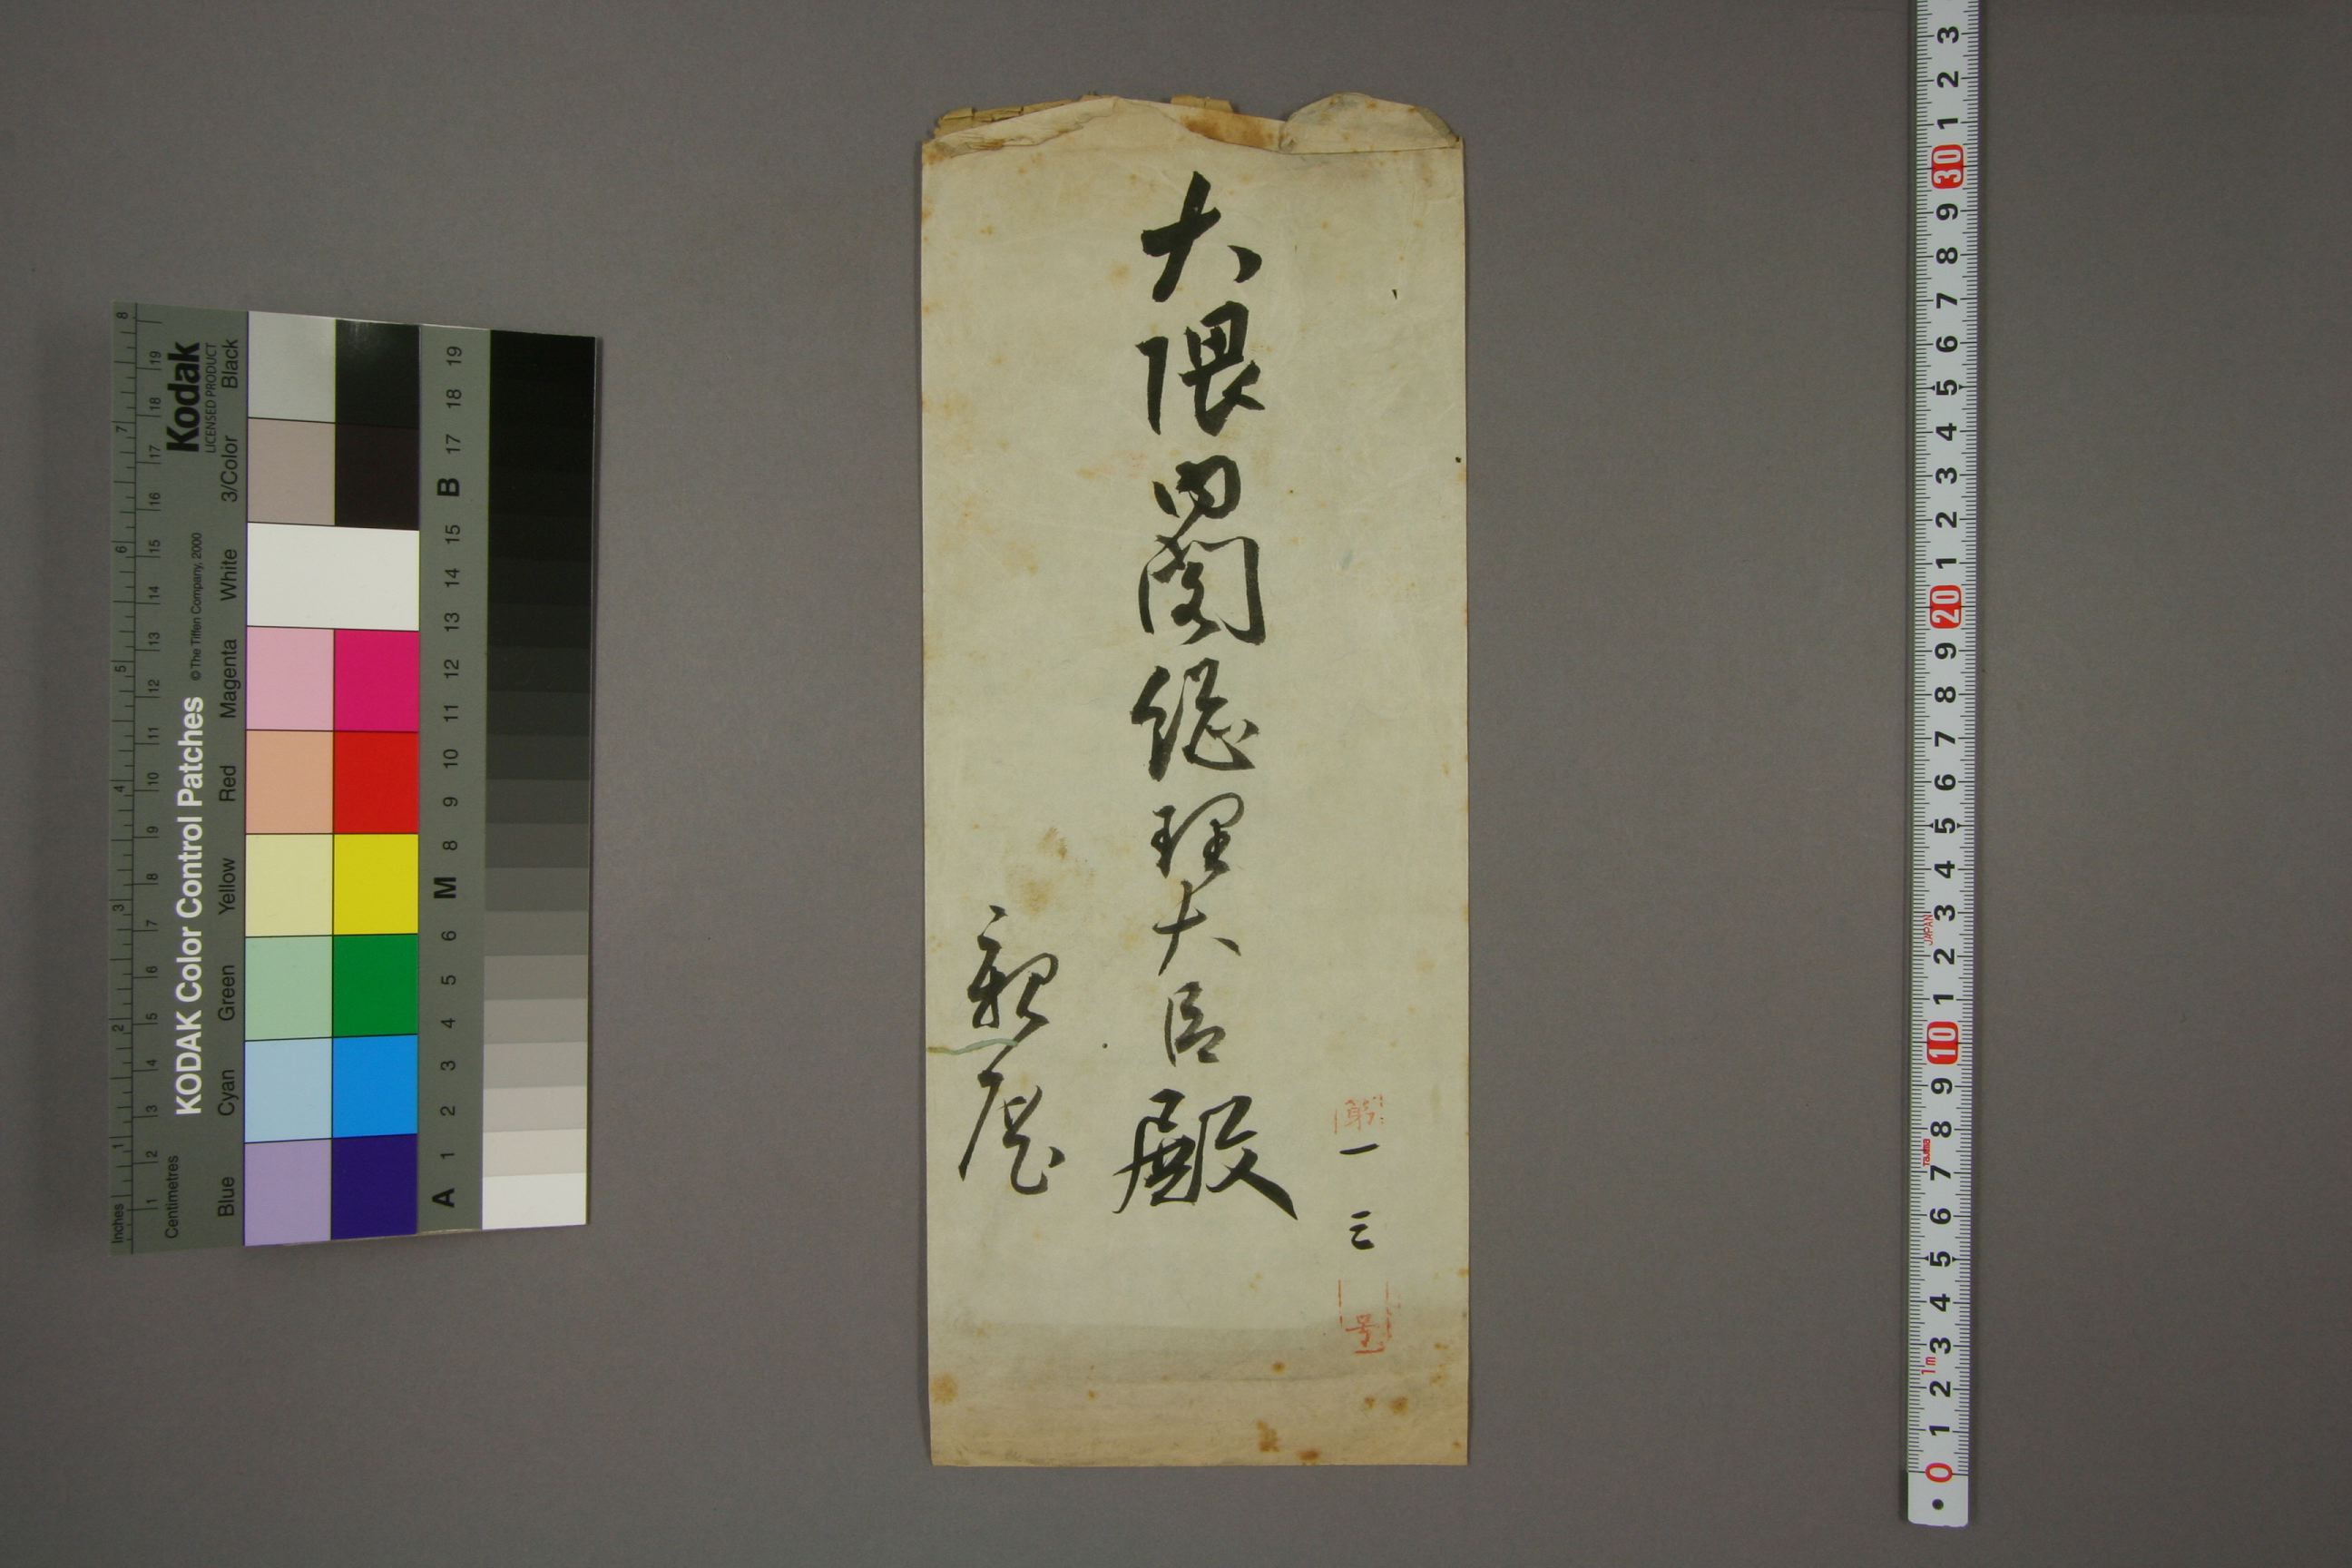 大隈内閣総理大臣殿
親展
一三
号
KODAK Color Control Patches
© The Tiffen Company, 2000
Kodak
LICENSED PRODUCT
Inches
Centimetres
Blue Cyan Green Yellow Red Magenta White 3/Color Black
1 2 3 4 5 6 7 8
1 2 3 4 5 6 7 8 9 10 11 12 13 14 15 16 17 18 19
A 1 2 3 4 5 6 M 8 9 10 11 12 13 14 15 B 17 18 19
0 1 2 3 4 5 6 7 8 9 10 1 2 3 4 5 6 7 8 9 20 1 2 3 4 5 6 7 8 9 30 1 2 3
1m
TAJIMA
JAPAN